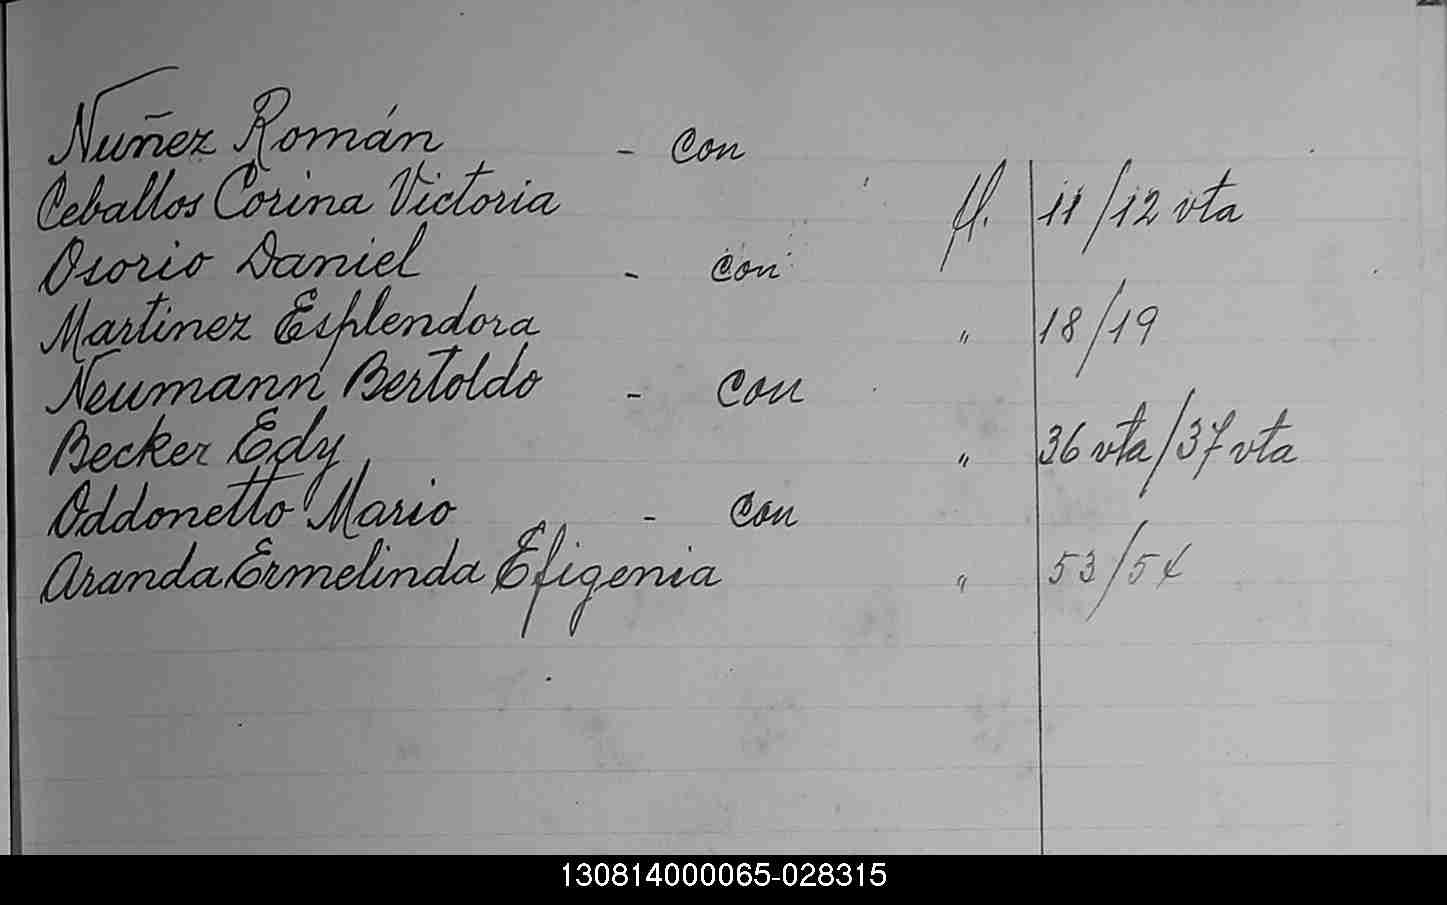 Nuñez Román - con
Ceballos Corina Victoria fl. 11/12 vta
Osorio Daniel - con
Martinez Esplendora " 18/19
Neumann Bertoldo - con
Becker Edy " 36 vta/37 vta
Oddonetto Mario - con
Aranda Ermelinda Efigenia " 53/54
130814000065-028315